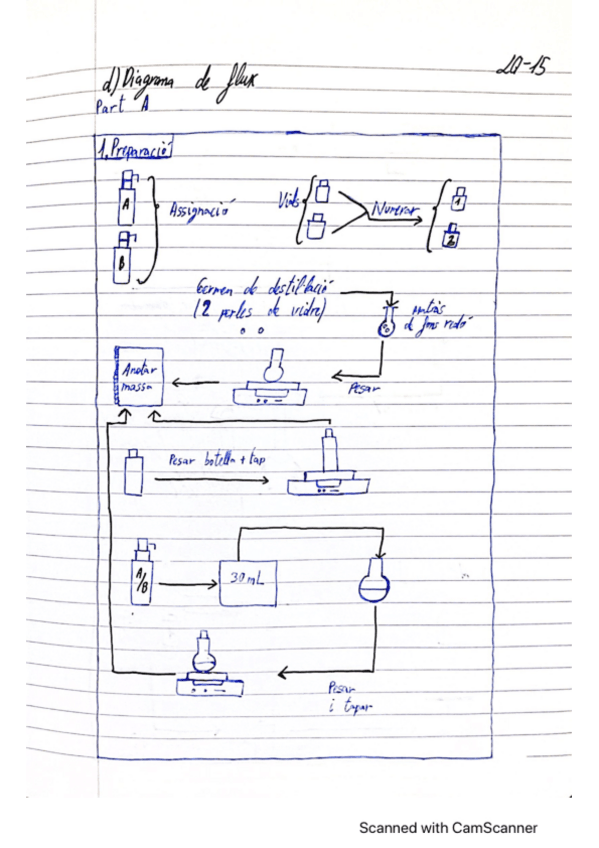 d) Diagrama de flux
LQ-15
Part A
1. Preparació
A
B
Assignació
Vials
Numerar
1
2
Germen de destil·lació
(2 perles de vidre)
matràs
de fons rodó
Pesar
Anotar
massa
Pesar botella + tap
A/B
30 mL
Pesar
i tapar
Scanned with CamScanner